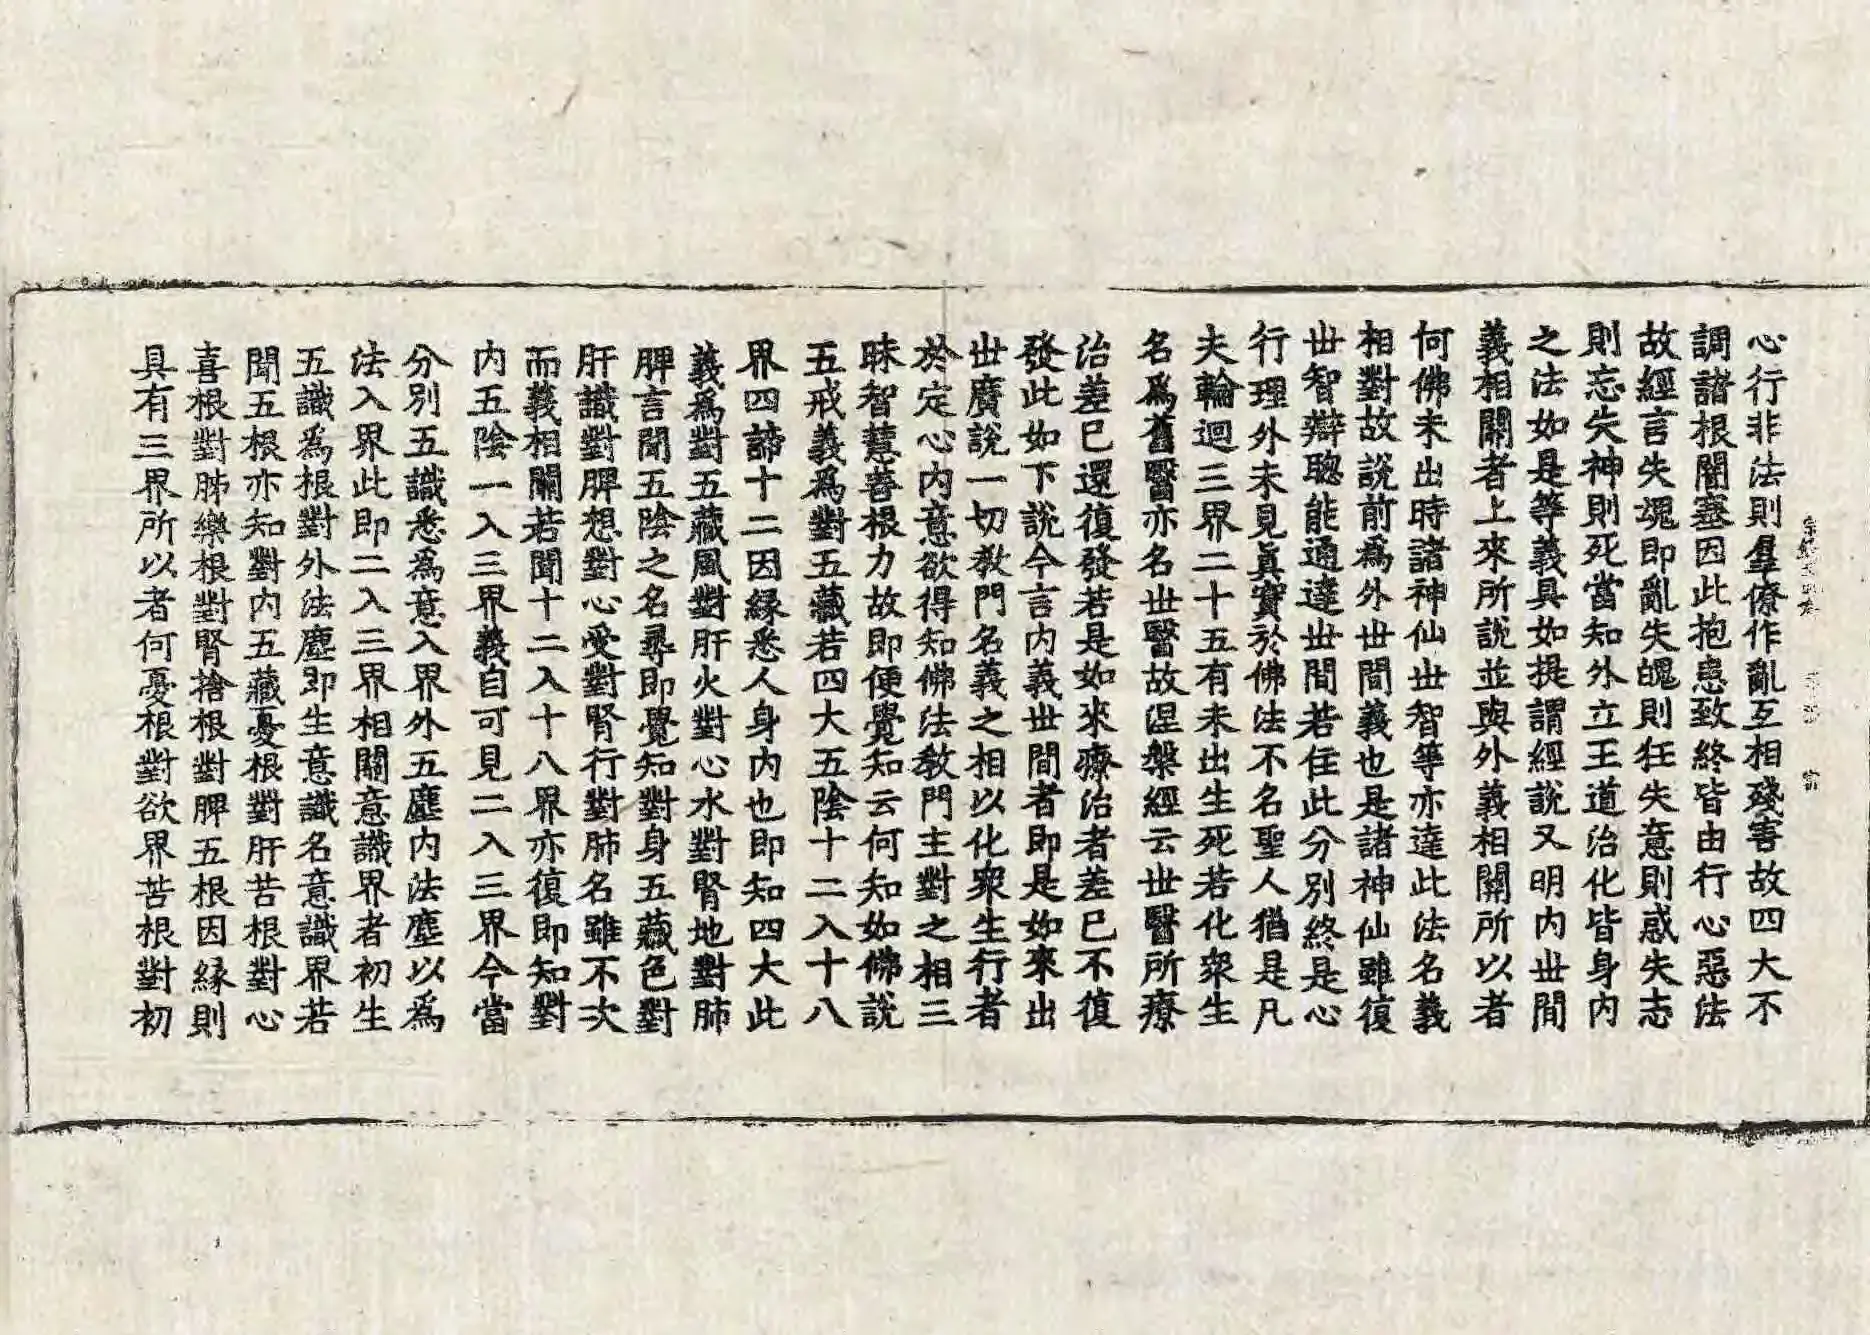 心行非法則羣僚作亂互相殘害故四大不
調諸根闇塞因此抱患致終皆由行心惡法
故經言失魂即亂失魄則狂失意則惑失志
則忘失神則死當知外立王道治化皆身内
之法如是等義具如提謂經說又明内世間
義相關者上來所說並與外義相關所以者
何佛未出時諸神仙世智等亦達此法名義
相對故說前爲外世間義也是諸神仙雖復
世智辯聰能通達世間若住此分別終是心
行理外未見眞實於佛法不名聖人猶是凡
夫輪迴三界二十五有未出生死若化衆生
名爲舊醫亦名世醫故涅槃經云世醫所療
治差已還復發若是如來療治者差已不復
發此如下說今言内義世間者即是如來出
世廣說一切教門名義之相以化衆生行者
於定心内意欲得知佛法教門主對之相三
昧智慧善根力故即便覺知云何知如佛說
五戒義爲對五藏若四大五陰十二入十八
界四諦十二因緣悉人身内也即知四大此
義爲對五藏風對肝火對心水對腎地對肺
脾言聞五陰之名尋即覺知對身五藏色對
肝識對脾想對心受對腎行對肺名雖不次
而義相關若聞十二入十八界亦復即知對
内五陰一入三界義自可見二入三界今當
分別五識悉爲意入界外五塵内法塵以爲
法入界此即二入三界相關意識界者初生
五識爲根對外法塵即生意識名意識界若
聞五根亦知對内五藏憂根對肝苦根對心
喜根對肺樂根對腎捨根對脾五根因緣則
具有三界所以者何憂根對欲界苦根對初